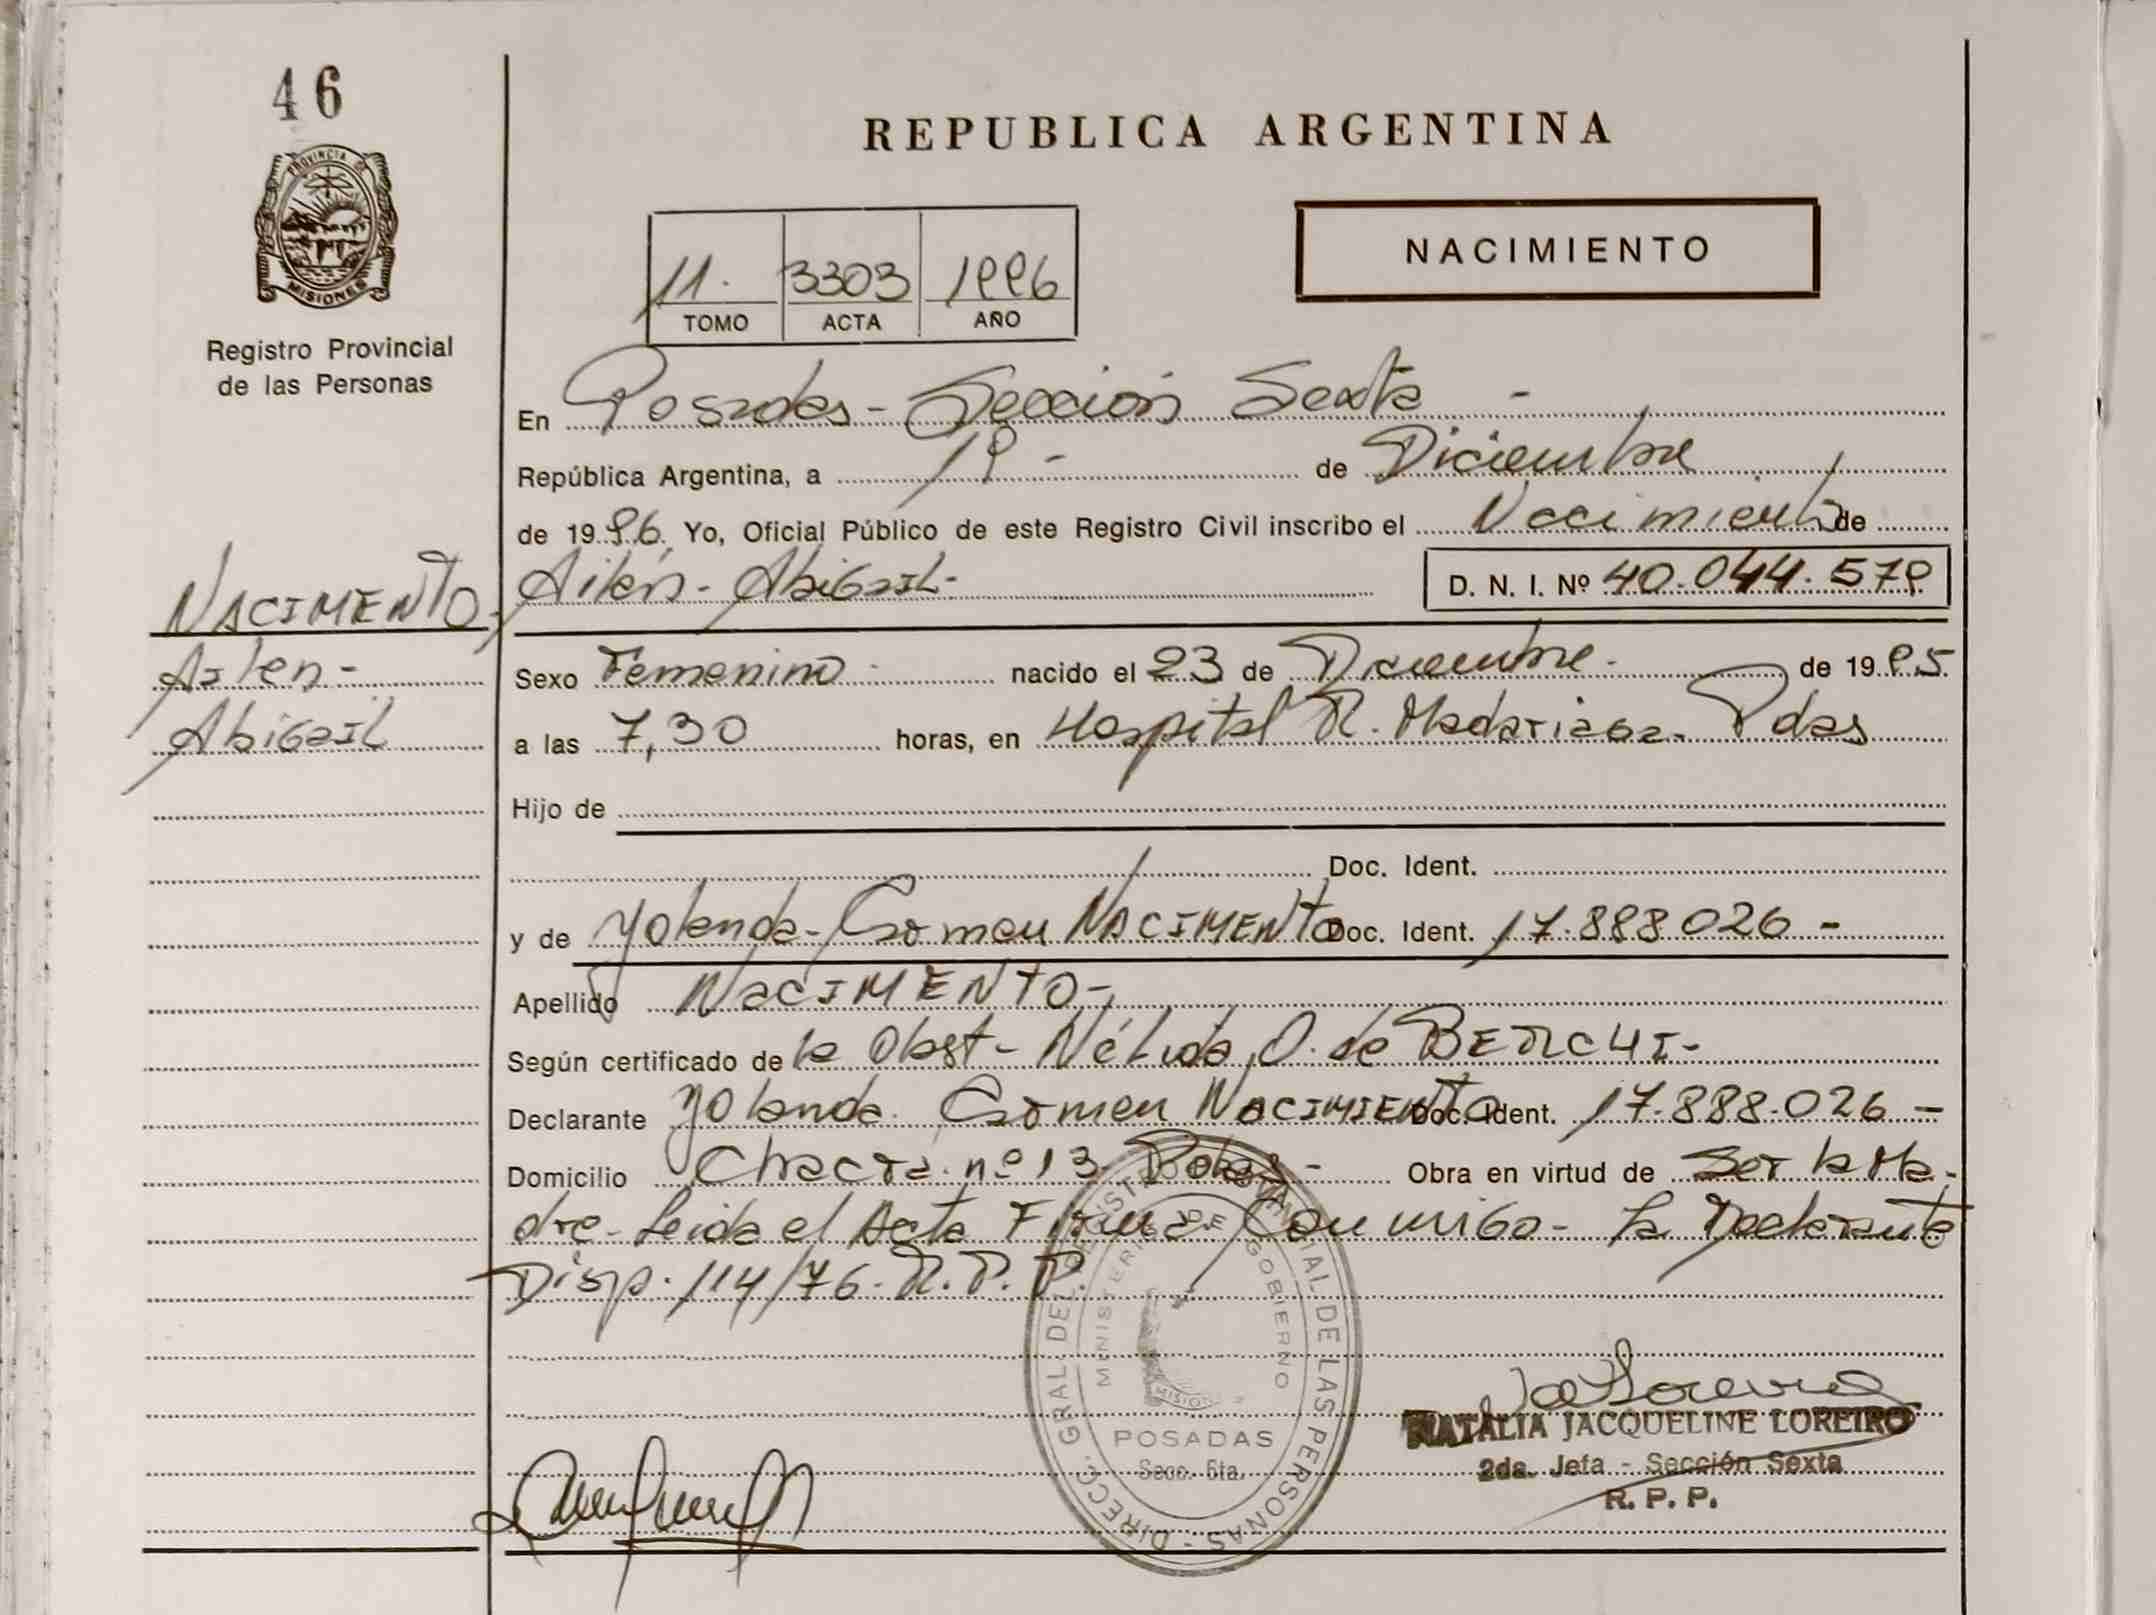 46
PROVINCIA DE
MISIONES
Registro Provincial
de las Personas
NACIMENTO
Ailen -
Abigail
REPUBLICA ARGENTINA
NACIMIENTO
11. 3303 1996
TOMO ACTA AÑO
En Posadas - Sección Sexta -
República Argentina, a 19 - de Diciembre
de 1996. Yo, Oficial Público de este Registro Civil inscribo el Nacimiento de
Ailén - Abigail - D. N. I. Nº 40.044.579
Sexo Femenino - nacido el 23 de Diciembre - de 1995
a las 7,30 horas, en Hospital R. Madariaga - Pdas
Hijo de
Doc. Ident.
y de Yolanda - Carmen NACIMENTO Doc. Ident. 17.888.026 -
Apellido NACIMENTO -
Según certificado de la Obst - Nélida O. de BERCHI -
Declarante Yolanda Carmen NACIMIENTO Doc. Ident. 17.888.026 -
Domicilio Chacra nº 13 Pdas - Obra en virtud de Ser la Ma-
dre - Leida el Acta Firma Conmigo - la Declarante
Disp. 114/76 - R. P. P.
DIRECC. GRAL. DEL REGISTRO PROVINCIAL DE LAS PERSONAS -
MINISTERIO DE GOBIERNO
MISIONES
POSADAS
Secc. 6ta.
NATALIA JACQUELINE LOREIRO
2da. Jefa - Sección Sexta
R. P. P.